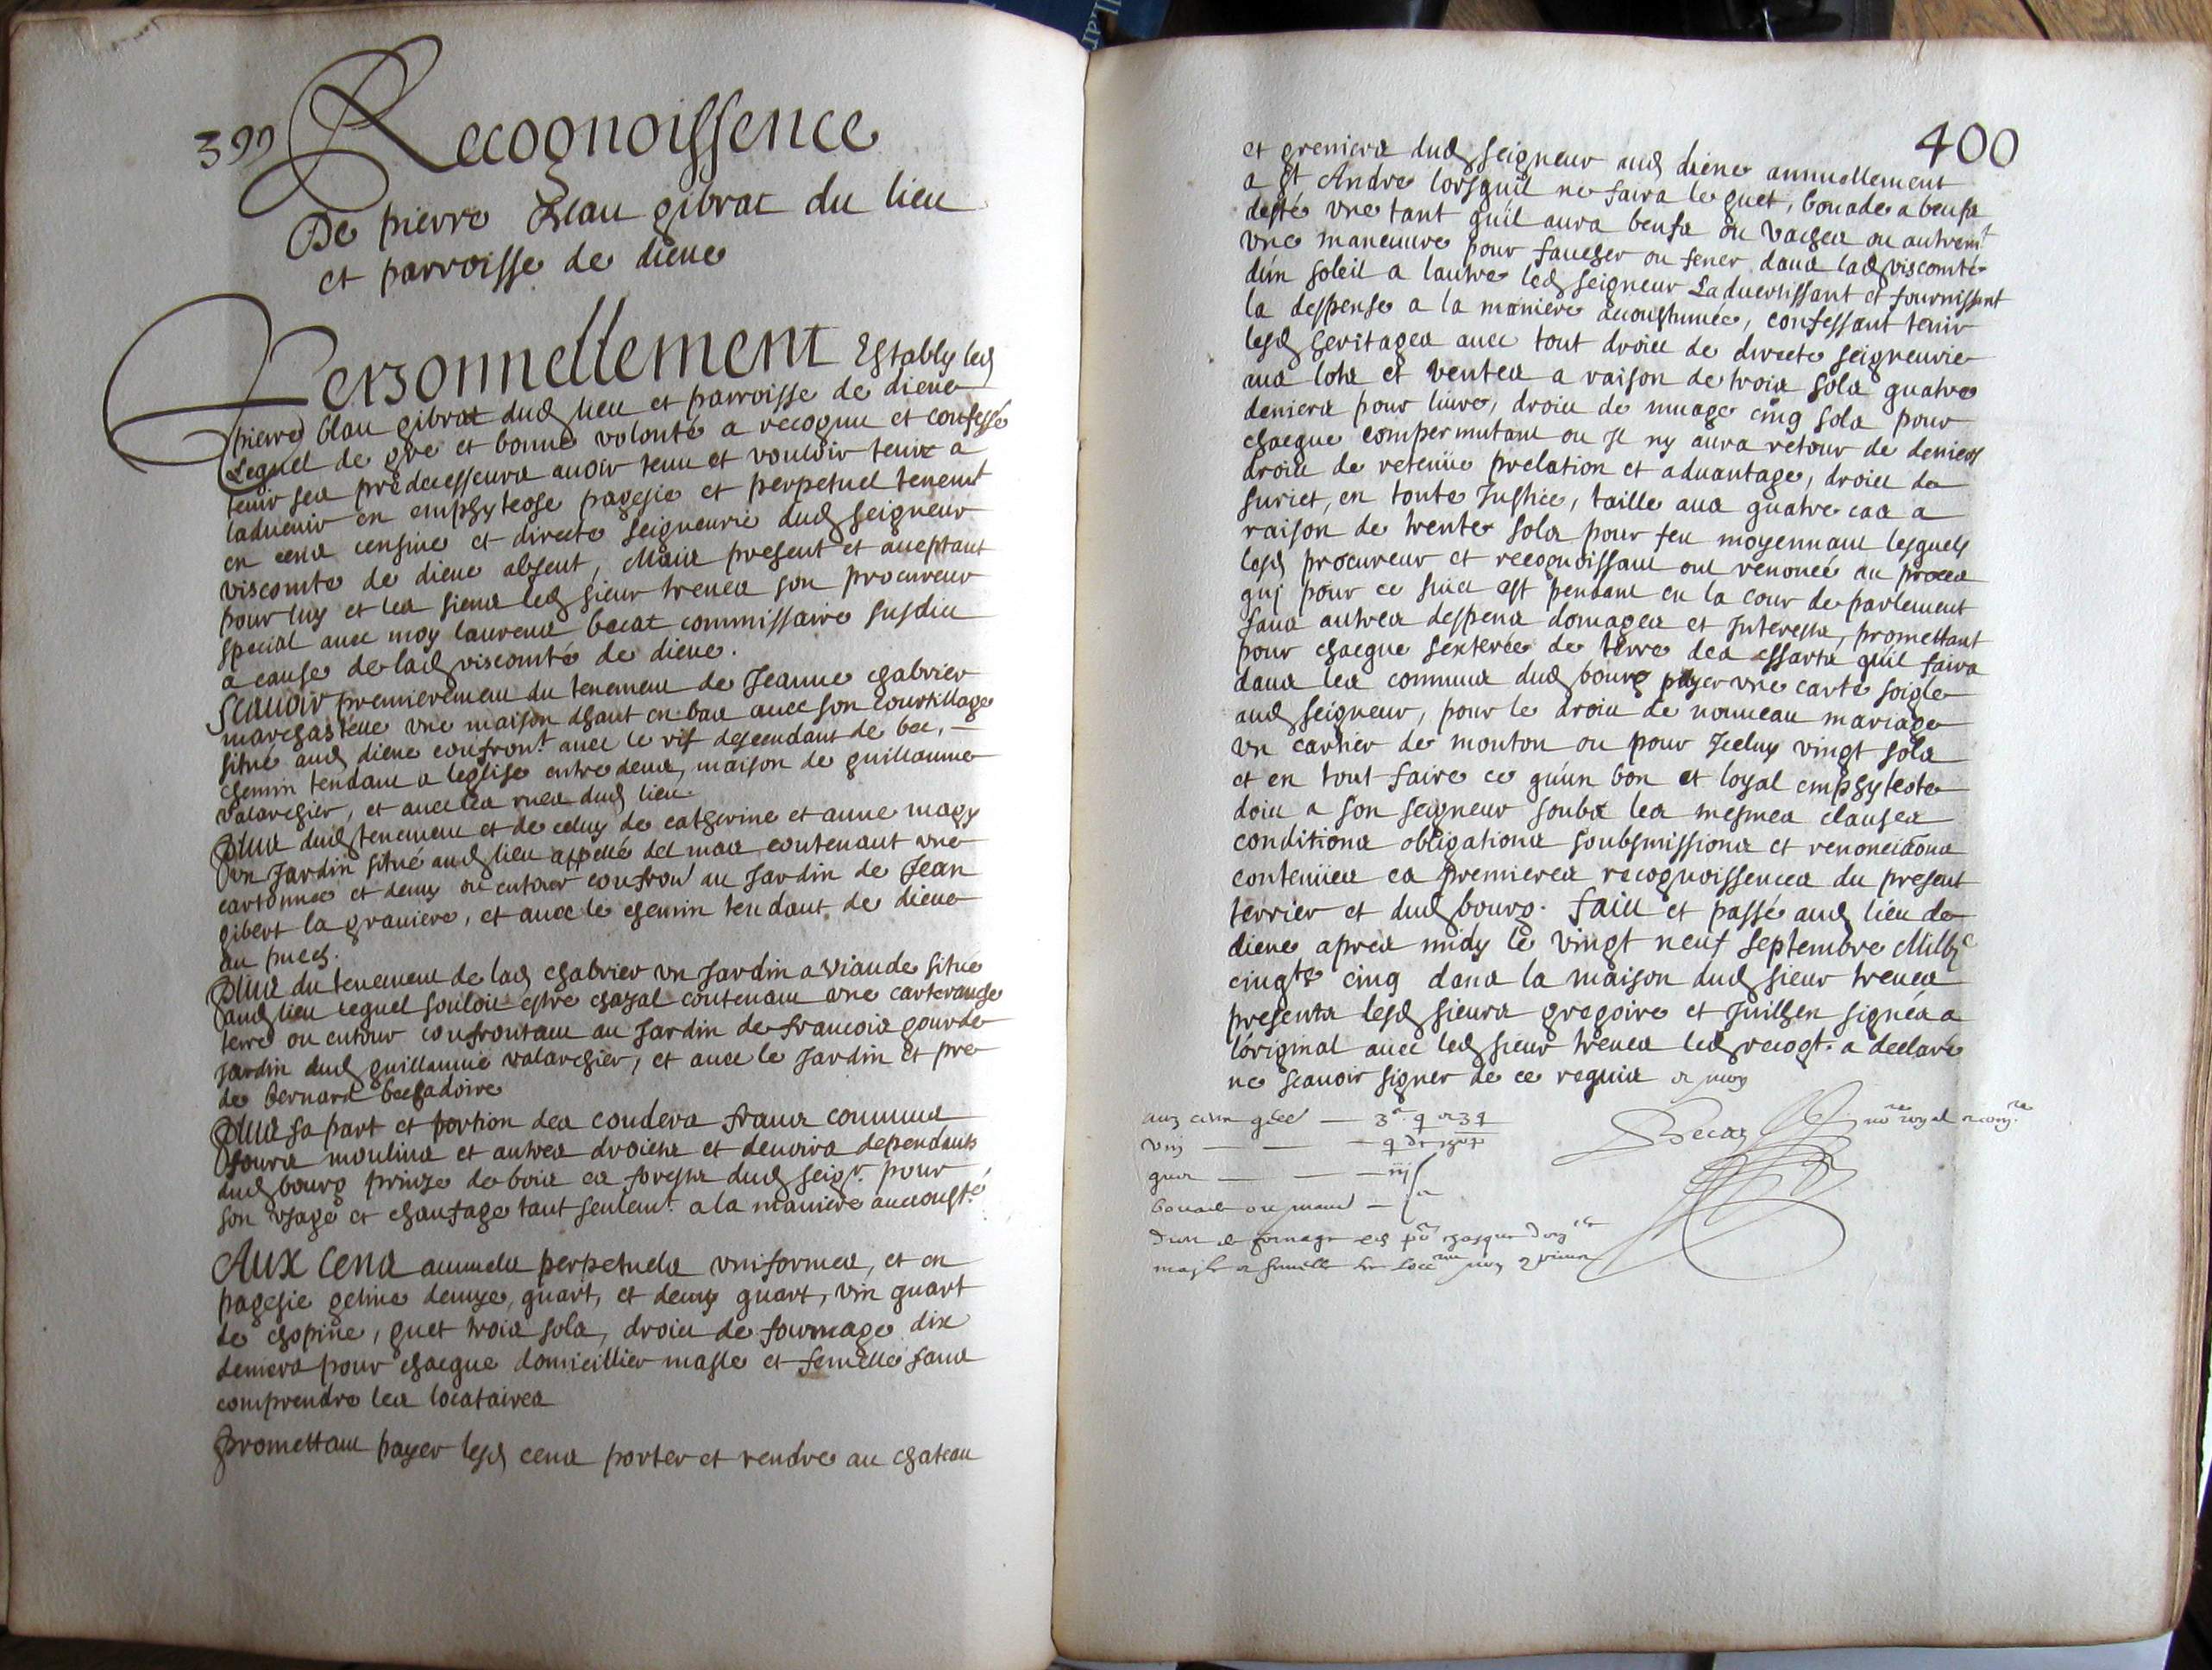 399
Recognoissence
De pierre Blau gibrat du lieu
et parroisse de diene
Personnellement Estably led
pierre blau gibrat dud lieu et parroisse de diene
Lequel de gre et bonne volonté a recognu et confessé
tenir ses predecesseurs avoir tenu et vouloir tenir a
ladvenir en emphyteose pagesie et perpetuel tenemt
en cens censive et directe seigneurie dud seigneur
viscomte de diene absent, Mais present et aceptant
pour luy et les siens led sieur treves son procureur
special avec moy laurens becat commissaire susdict
a cause de lad viscomté de diene.
Scavoir premierement du tenement de Jeanne chabrier
marchastelle vne maison dhaut en bas avec son courtillage
situé aud diene confront. avec le rif descendant de bec,
chemin tendant a leglise entre deux, maison de guillaume
valarchier, et avec les rues dud lieu.
Plus dud tenement et de celuy de catherine et anne magy
vn Jardin situé aud lieu appellé del mas contenant vne
cartonnee et demy ou entour confron au Jardin de Jean
gibert la graniere, et avec le chemin tendant de diene
au puech.
Plus du tenement de lad chabrier vn Jardin a viande situé
aud lieu lequel souloit estre chazal contenant vne carterande
terre ou entour confrontant au Jardin de francois gourde
Jardin dud guillaume valarchier, et avec le Jardin et pre
de bernard bechadoire
Plus sa part et portion des couders fraux communs
fours moulins et autres droicts et devoirs dependants
dud bourg prinze de bois es forests dud seigr. pour
son vsage et chaufage tant seulemt. a la maniere accoust.é
Aux Cens annuels perpetuels vniformes, et en
pagesie geline demye, quart, et demy quart, vin quart
de chopine, guet trois sols, droict de fourmage dix
deniers pour chacque domicillier masle et femelle sans
comprendre les locataires
Promettant payer lesd cens porter et rendre au chateau
400
et greniers dud seigneur aud diene annuellement
a St Andre lorsquil ne faira le guet, bouade a beufs
desté vne tant quil aura beufs ou vaches ou autremt
vne maneuvre pour faucher ou fener dans lad viscomté
dún soleil a lautre led seigneur Ladvertissant et fournissant
la despense a la maniere acoustumée, confessant tenir
lesd heritages avec tout droict de directe seigneurie
aux lots et ventes a raison de trois sols quatre
deniers pour livre, droict de muage cinq sols pour
chacque compermutant ou Il ny aura retour de deniers
droict de retenüe prelation et advantage, droict de
suriet, en toute Justice, taille aux quatre cas a
raison de trente sols pour feu moyennant lesquels
lesd procureur et recognoissant ont renoncé au proces
qui pour ce suict est pendant en la cour de parlement
sans autres despens domages et Interests, promettant
pour chacque sexterée de terre des essarts quil faira
dans les communs dud bourg payer vne carte soigle
aud seigneur, pour le droict de nouveau mariage
vn cartier de mouton ou pour Jceluy vingt sols
et en tout faire ce quún bon et loyal emphyteote
doict a son seigneur soubz les mesmes clauses
conditions obligations soubsmissions et renonciãons
contenües es premieres recognoissences du present
terrier et dud bourg. Faict et passé aud lieu de
diene apres midy le vingt neuf septembre Mil vjc
cinqte cinq dans la maison dud sieur treves
presents lesd sieurs gregoire et Juilhen signés a
lóriginal avec led sieur treves led recogt. a declaré
ne scavoir signer de ce requis et moy
Becat nore royal et comre
vin
guet iij s
bouade ou maneu